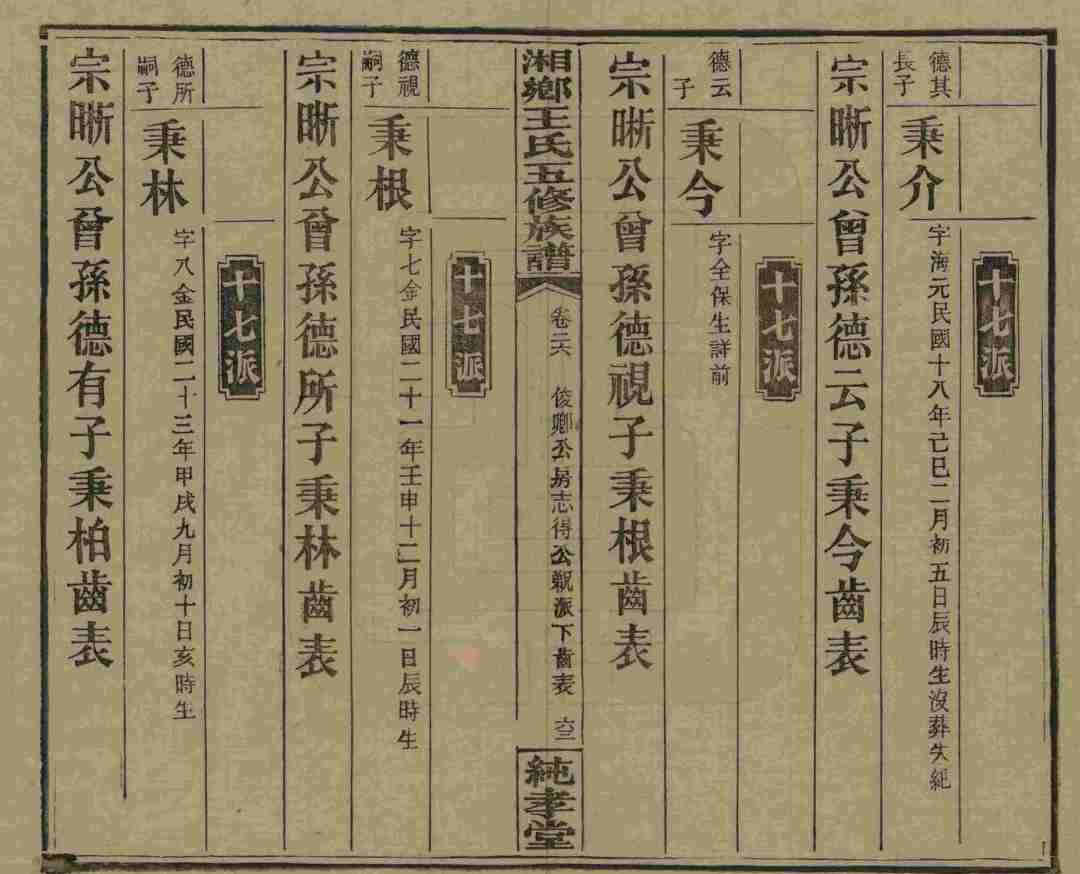 十七派
德其長子
秉介
字海元民國十八年己巳二月初五日辰時生沒葬失紀
宗晰公曾孫德云子秉今齒表
十七派
德云子
秉今
字全保生詳前
宗晰公曾孫德視子秉根齒表
湘鄉王氏五修族譜
卷二六
俊卿公房志得公觀派下齒表
六三
純孝堂
十七派
德視嗣子
秉根
字七金民國二十一年壬申十二月初一日辰時生
宗晰公曾孫德所子秉林齒表
十七派
德所嗣子
秉林
字八金民國二十三年甲戌九月初十日亥時生
宗晰公曾孫德有子秉柏齒表